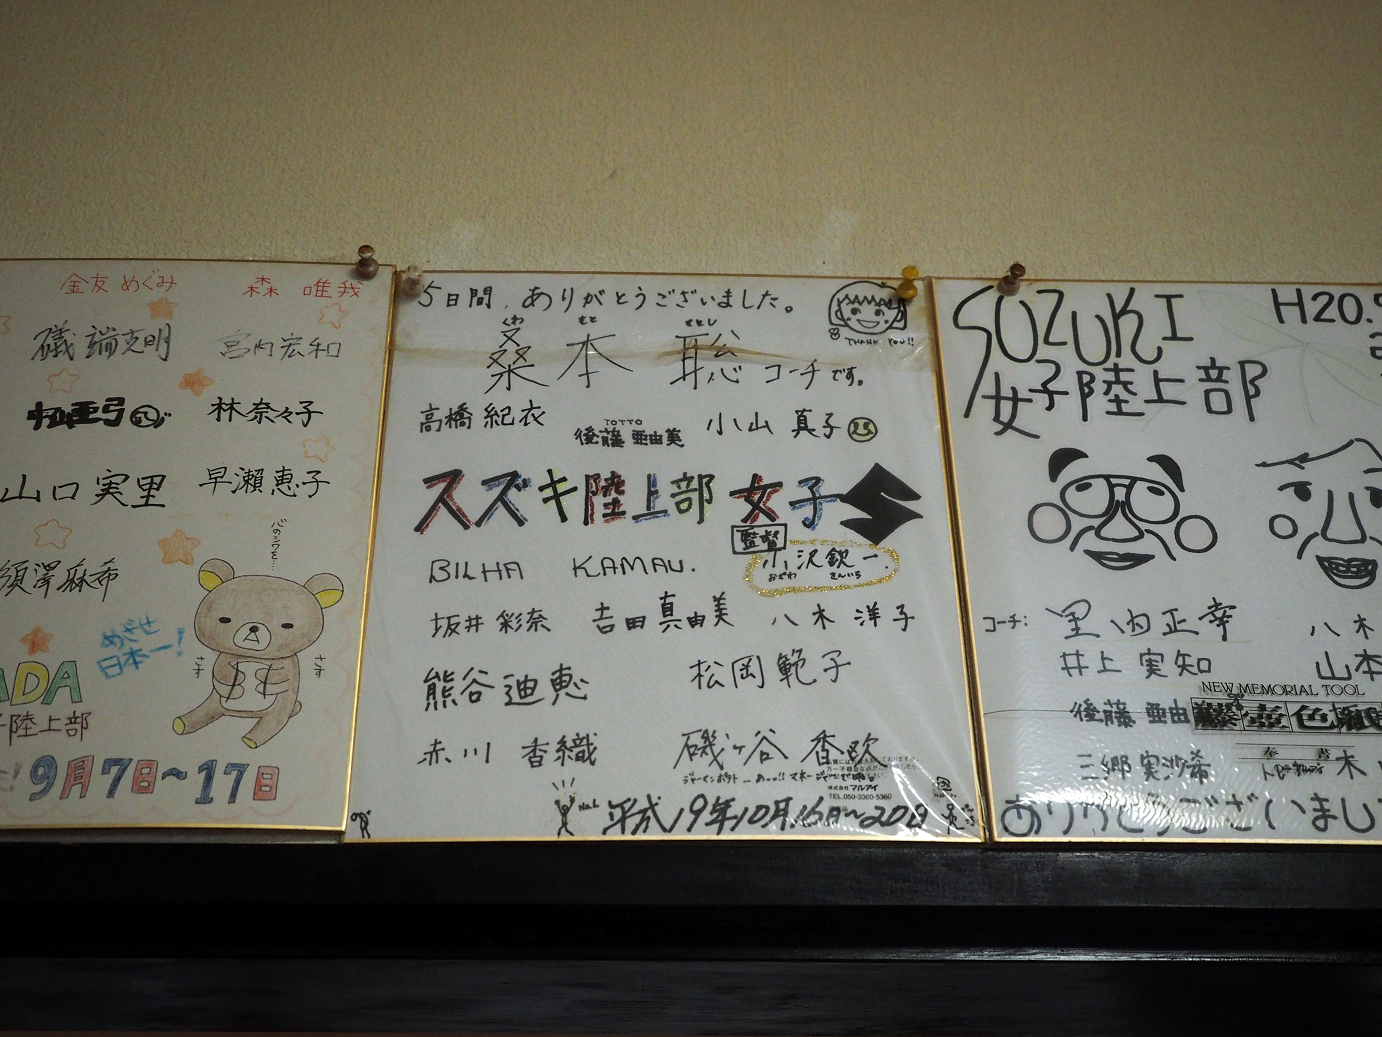 金友 めぐみ
森 唯我
磯端克明
宮内宏和
林奈々子
山口実里
早瀬恵子
須澤麻希
心のシワを…
めざせ
日本一!
さす
さす
ADA
子陸上部
9月7日~17日
5日間、ありがとうございました。
THANK YOU!!
くわ もと さとし
桑本 聡 コーチです。
高橋紀衣
TOTTO
後藤亜由美
小山真子
スズキ陸上部 女子
監督
小沢欽一
おざわ きんいち
BILHA KAMAU.
坂井彩奈
吉田真由美
八木洋子
熊谷迪恵
松岡範子
赤川香織
磯ヶ谷香欧
株式会社 マルアイ
TEL.050-3360-5360
平成19年10月16日~20日
SUZUKI
H20.9
女子陸上部
コーチ:
里内正幸
八木
井上実知
山本
NEW MEMORIAL TOOL
後藤亜由
壺色紙
奉書
三郷実沙希
木
ありがとうございまし